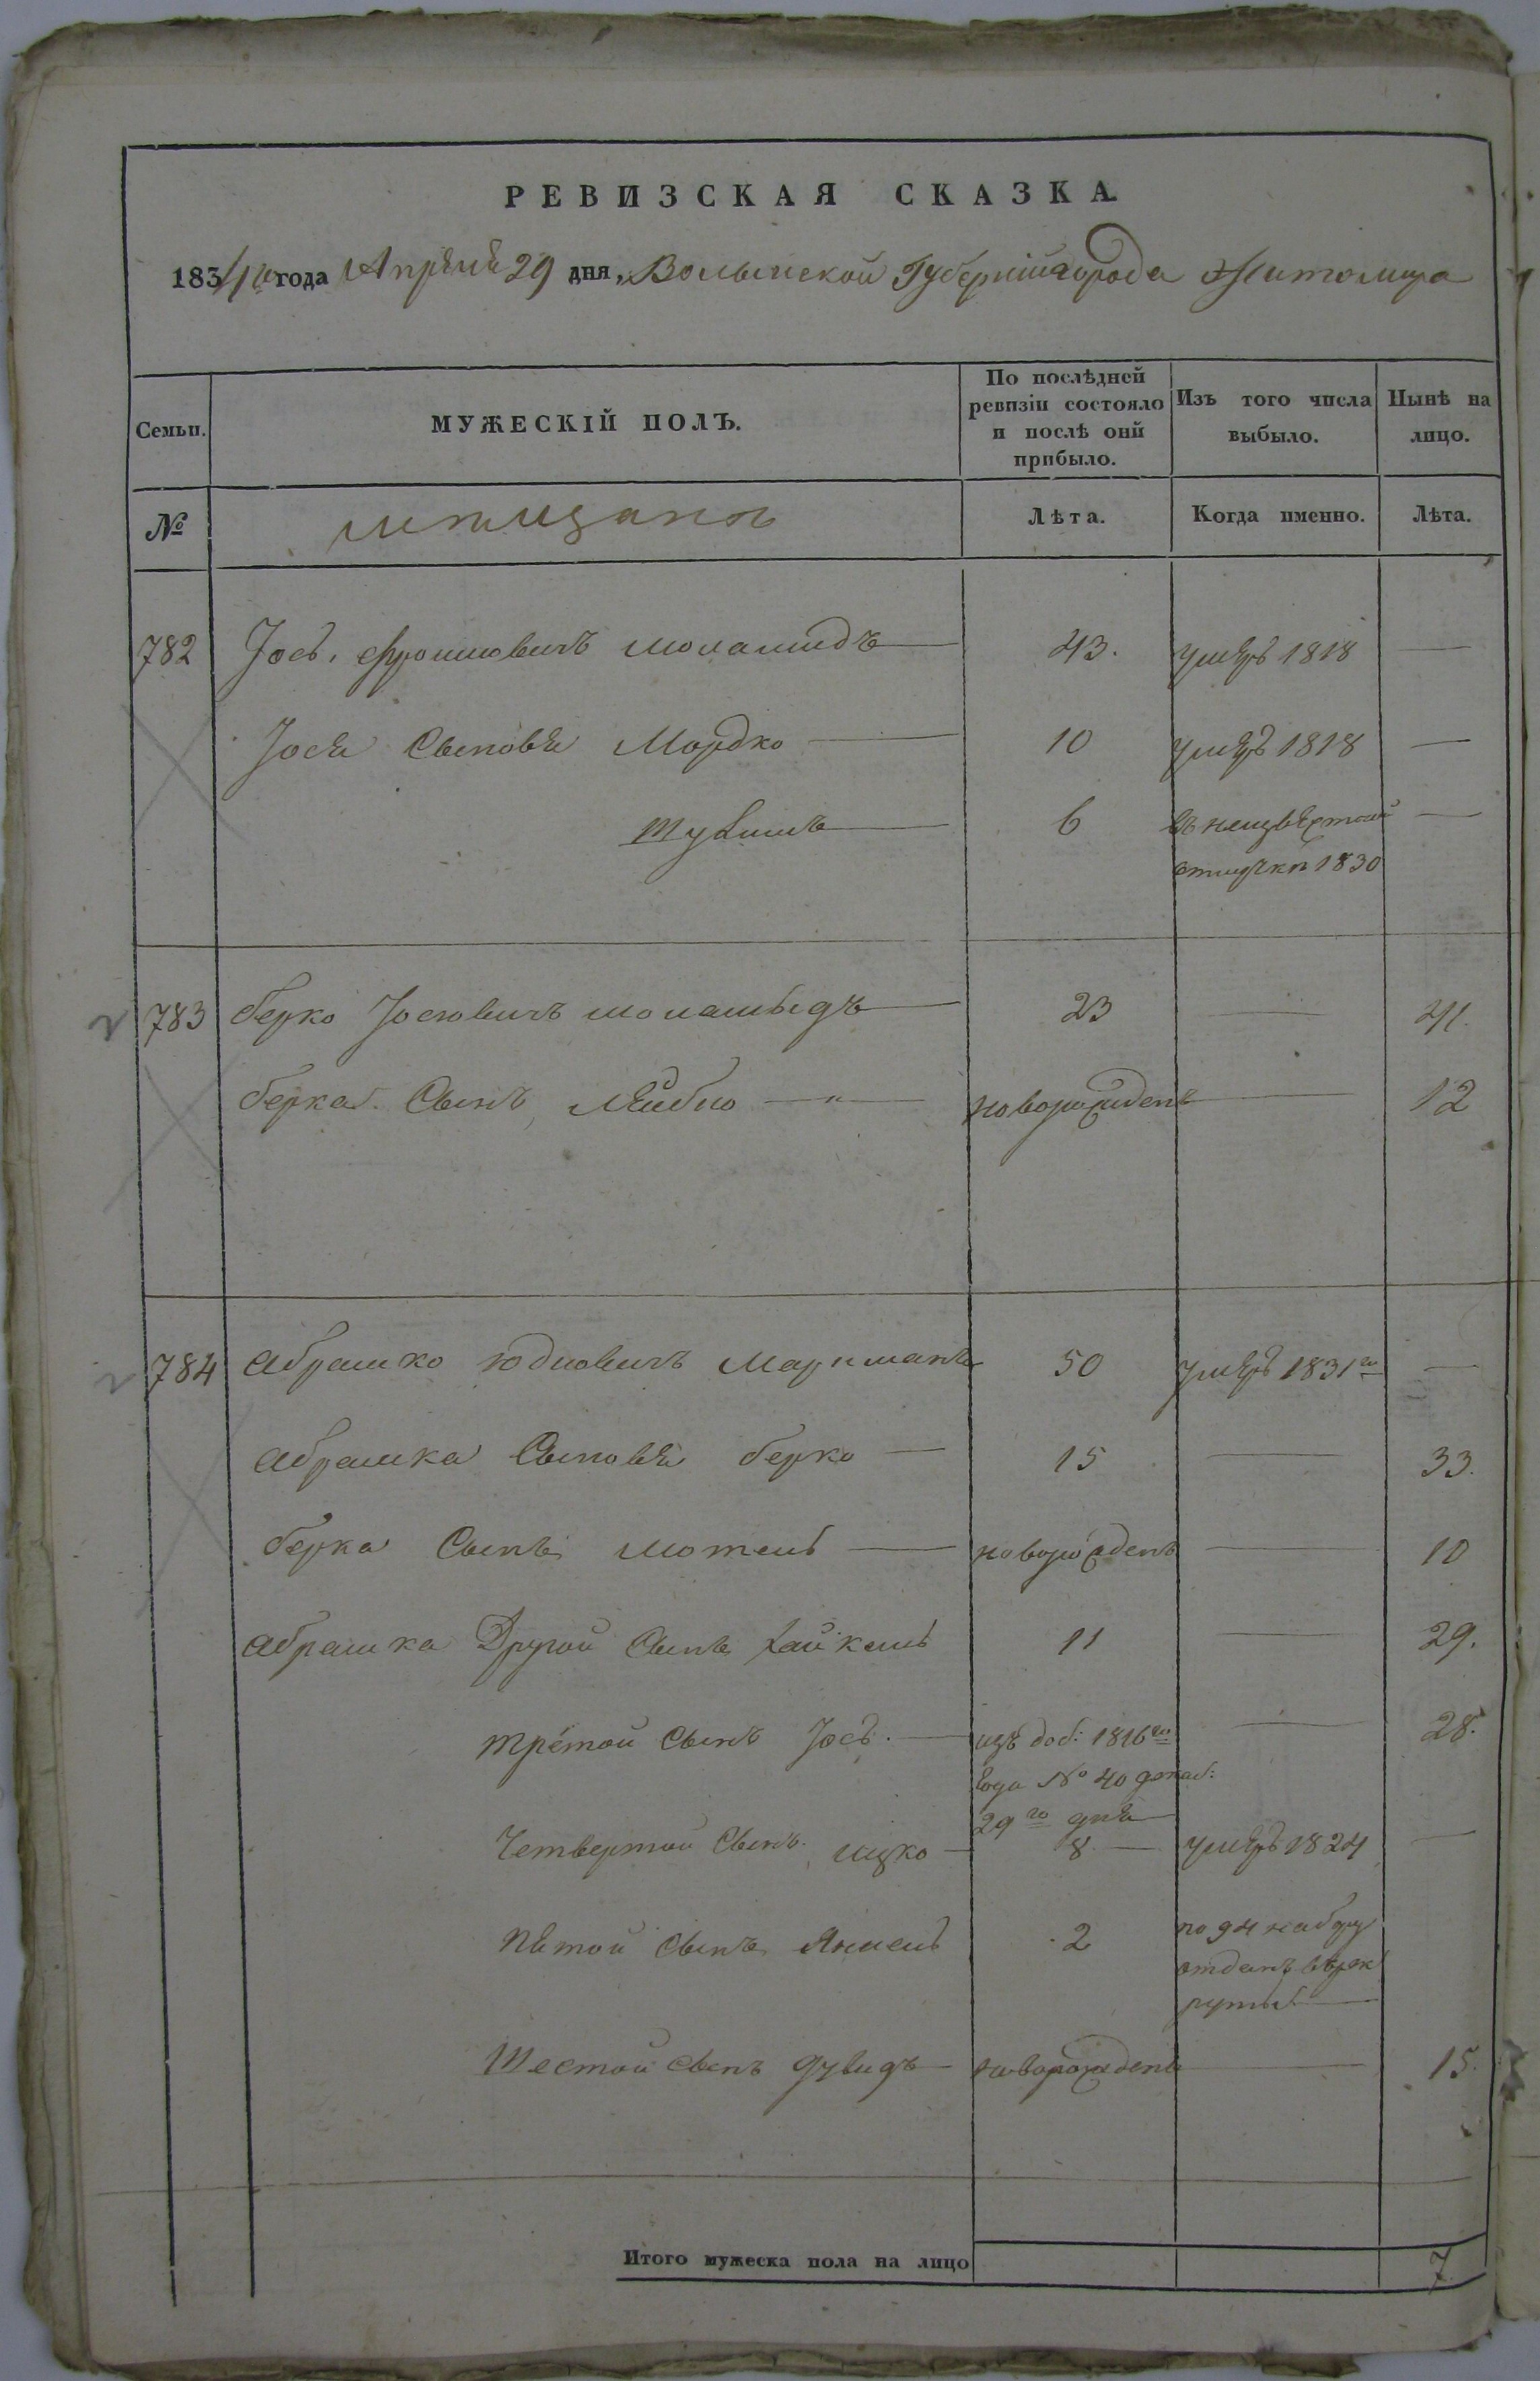 РЕВИЗСКАЯ СКАЗКА.
1834го года Апреля 29 дня, Волынской Губерніи города Житомира
Семьи. МУЖЕСКІЙ ПОЛЪ. По послѣдней ревизіи состояло и послѣ оній прибыло. Изъ того числа выбыло. Нынѣ на лицо.
№ Лѣта. Когда именно. Лѣта.
782 Іось 43. умеръ 1818 —
Іося Сыновья Мордко — 10 умеръ 1818 —
6 въ неизвестной —
отлучки 1830
783 Берко Іосіовичъ 23 — 41.
Берка Сынъ, Лейбко — новорожденъ — 12
784 Абрамко Юдковичъ 50 умеръ 1831го —
Абрамка Сыновья Берко — 15 — 33.
Берка Сынъ Мотель — новорожденъ — 10
Абрамка Другой Сынъ Хайкель 11 — 29.
Третой Сынъ Іось. — изъ доб: 1816го — 28.
года № 40 декаб:
29го дня
Четвертой Сынъ Ицко — 8 — умеръ 1824 —
Пятой Сынъ Янкель 2 по 94 набору
отданъ в рек
руты —
Шестой Сынъ Дувидъ — новорожденъ — 15.
Итого мужеска пола на лицо 7